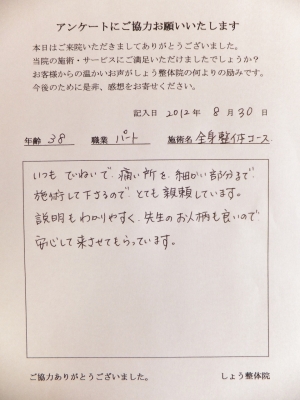 アンケートにご協力お願いいたします
本日はご来院いただきましてありがとうございました。
当院の施術・サービスにご満足いただけましたでしょうか?
お客様からの温かいお声がしょう整体院の何よりの励みです。
今後のために是非、感想をお寄せください。
記入日 2012年 8月30日
年齢 38 職業 パート 施術名 全身整体コース
いつも ていねいで 痛い所を 細かい部分まで
施術して下さるので とても 信頼しています。
説明もわかりやすく、先生のお人柄も良いので
安心して来させてもらっています。
ご協力ありがとうございました。 しょう整体院